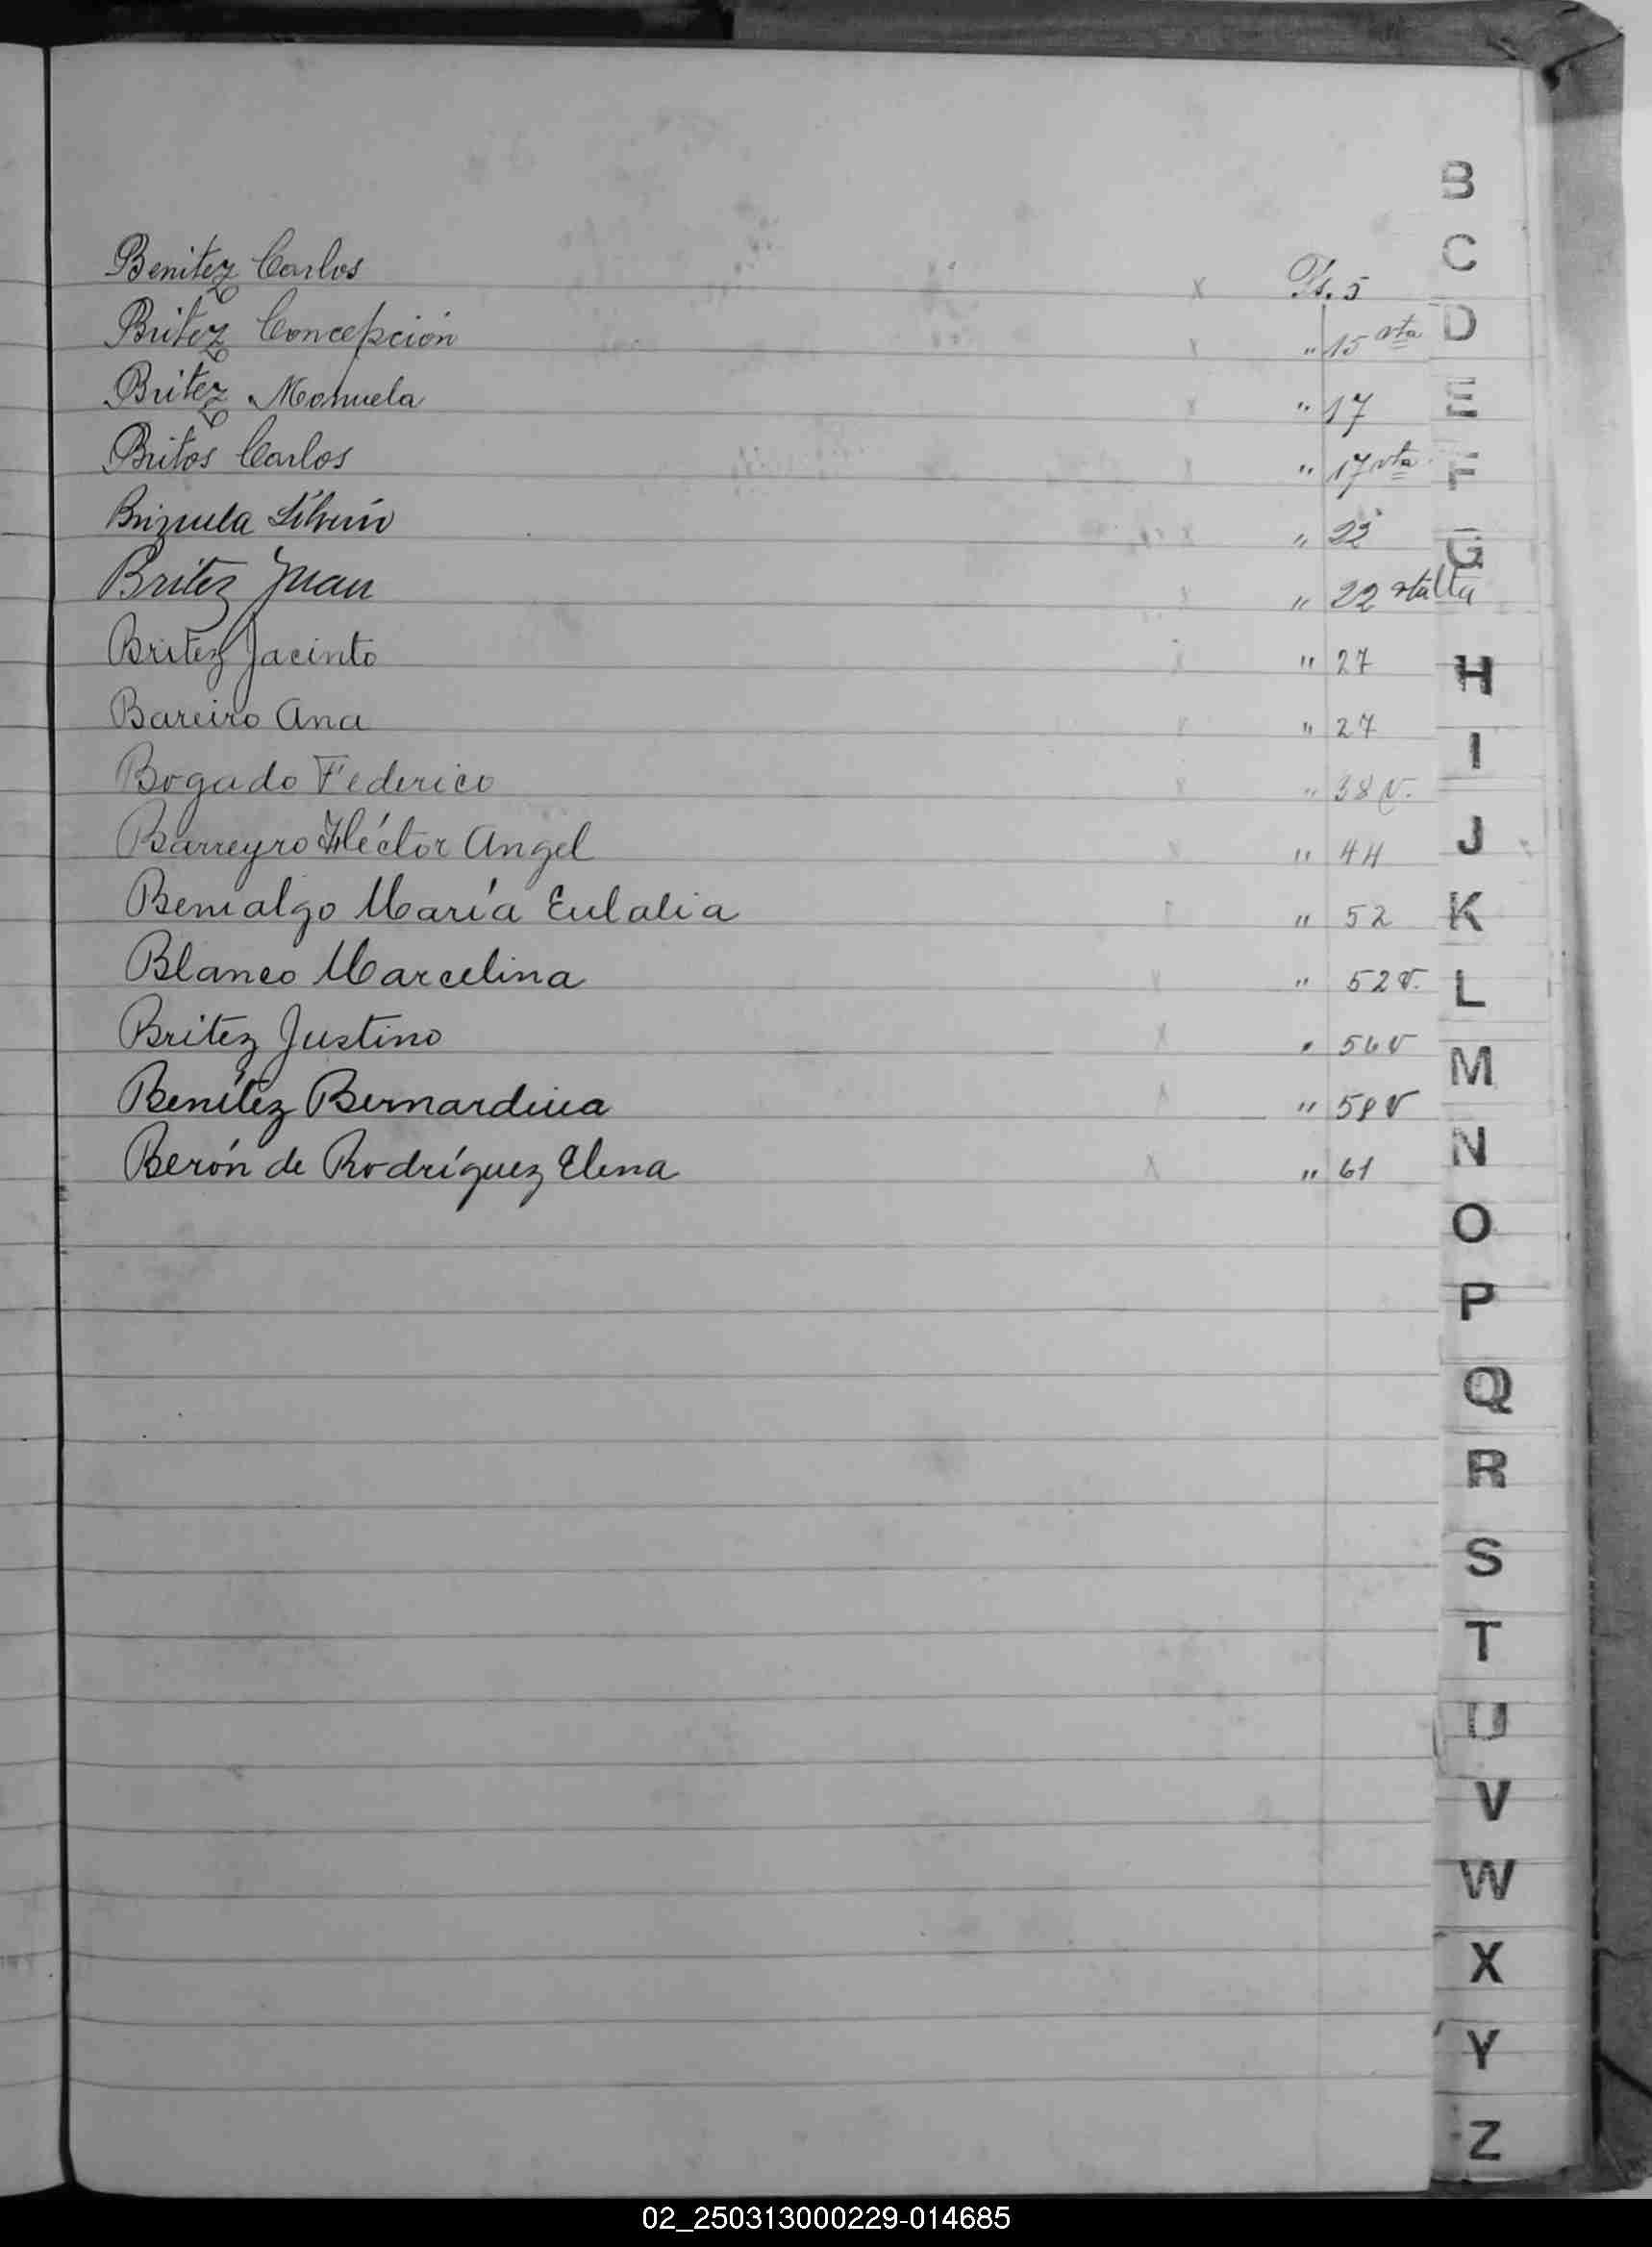 B
C
Benitez Carlos x Fs. 5
Britez Concepción x " 15 vta D
Britez Manuela x " 17 E
Britos Carlos x " 17 vta F
Brizuela Silvein x " 22 G
Britez Juan x " 22 vta
Britez Jacinto x " 27 H
Bareiro Ana x " 27 I
Bogado Federico x " 38 v.
Barreyro Héctor Angel x " 44 J
Benialgo María Eulalia " 52 K
Blanco Marcelina x " 52 v. L
Britez Justino x " 56 v M
Benítez Bernardina x " 58 v
Berón de Rodríguez Elena x " 61 N
O
P
Q
R
S
T
U
V
W
X
Y
Z
02_250313000229-014685